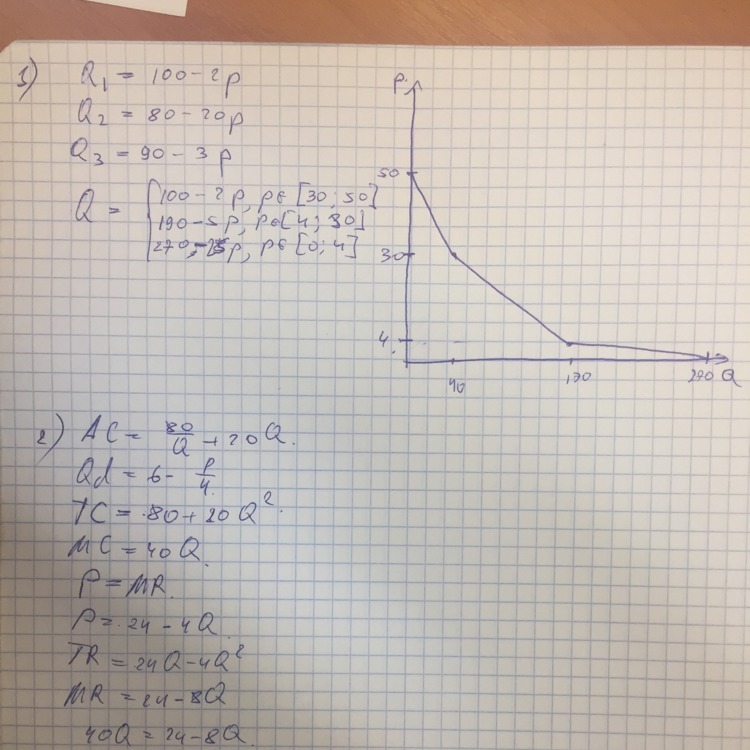 1)
Q₁ = 100 - 2p
Q₂ = 80 - 20p
Q₃ = 90 - 3p
Q = { 100 - 2p, p∈ [30; 50]
190 - 5p, p∈ [4; 30]
270 - 25p, p∈ [0; 4]
P
50
30
4
40 170 270 Q
2) AC = 80/Q + 20Q.
Qd = 6 - P/4
TC = 80 + 20Q².
MC = 40Q.
P = MR.
P = 24 - 4Q
TR = 24Q - 4Q²
MR = 24 - 8Q
40Q = 24 - 8Q.